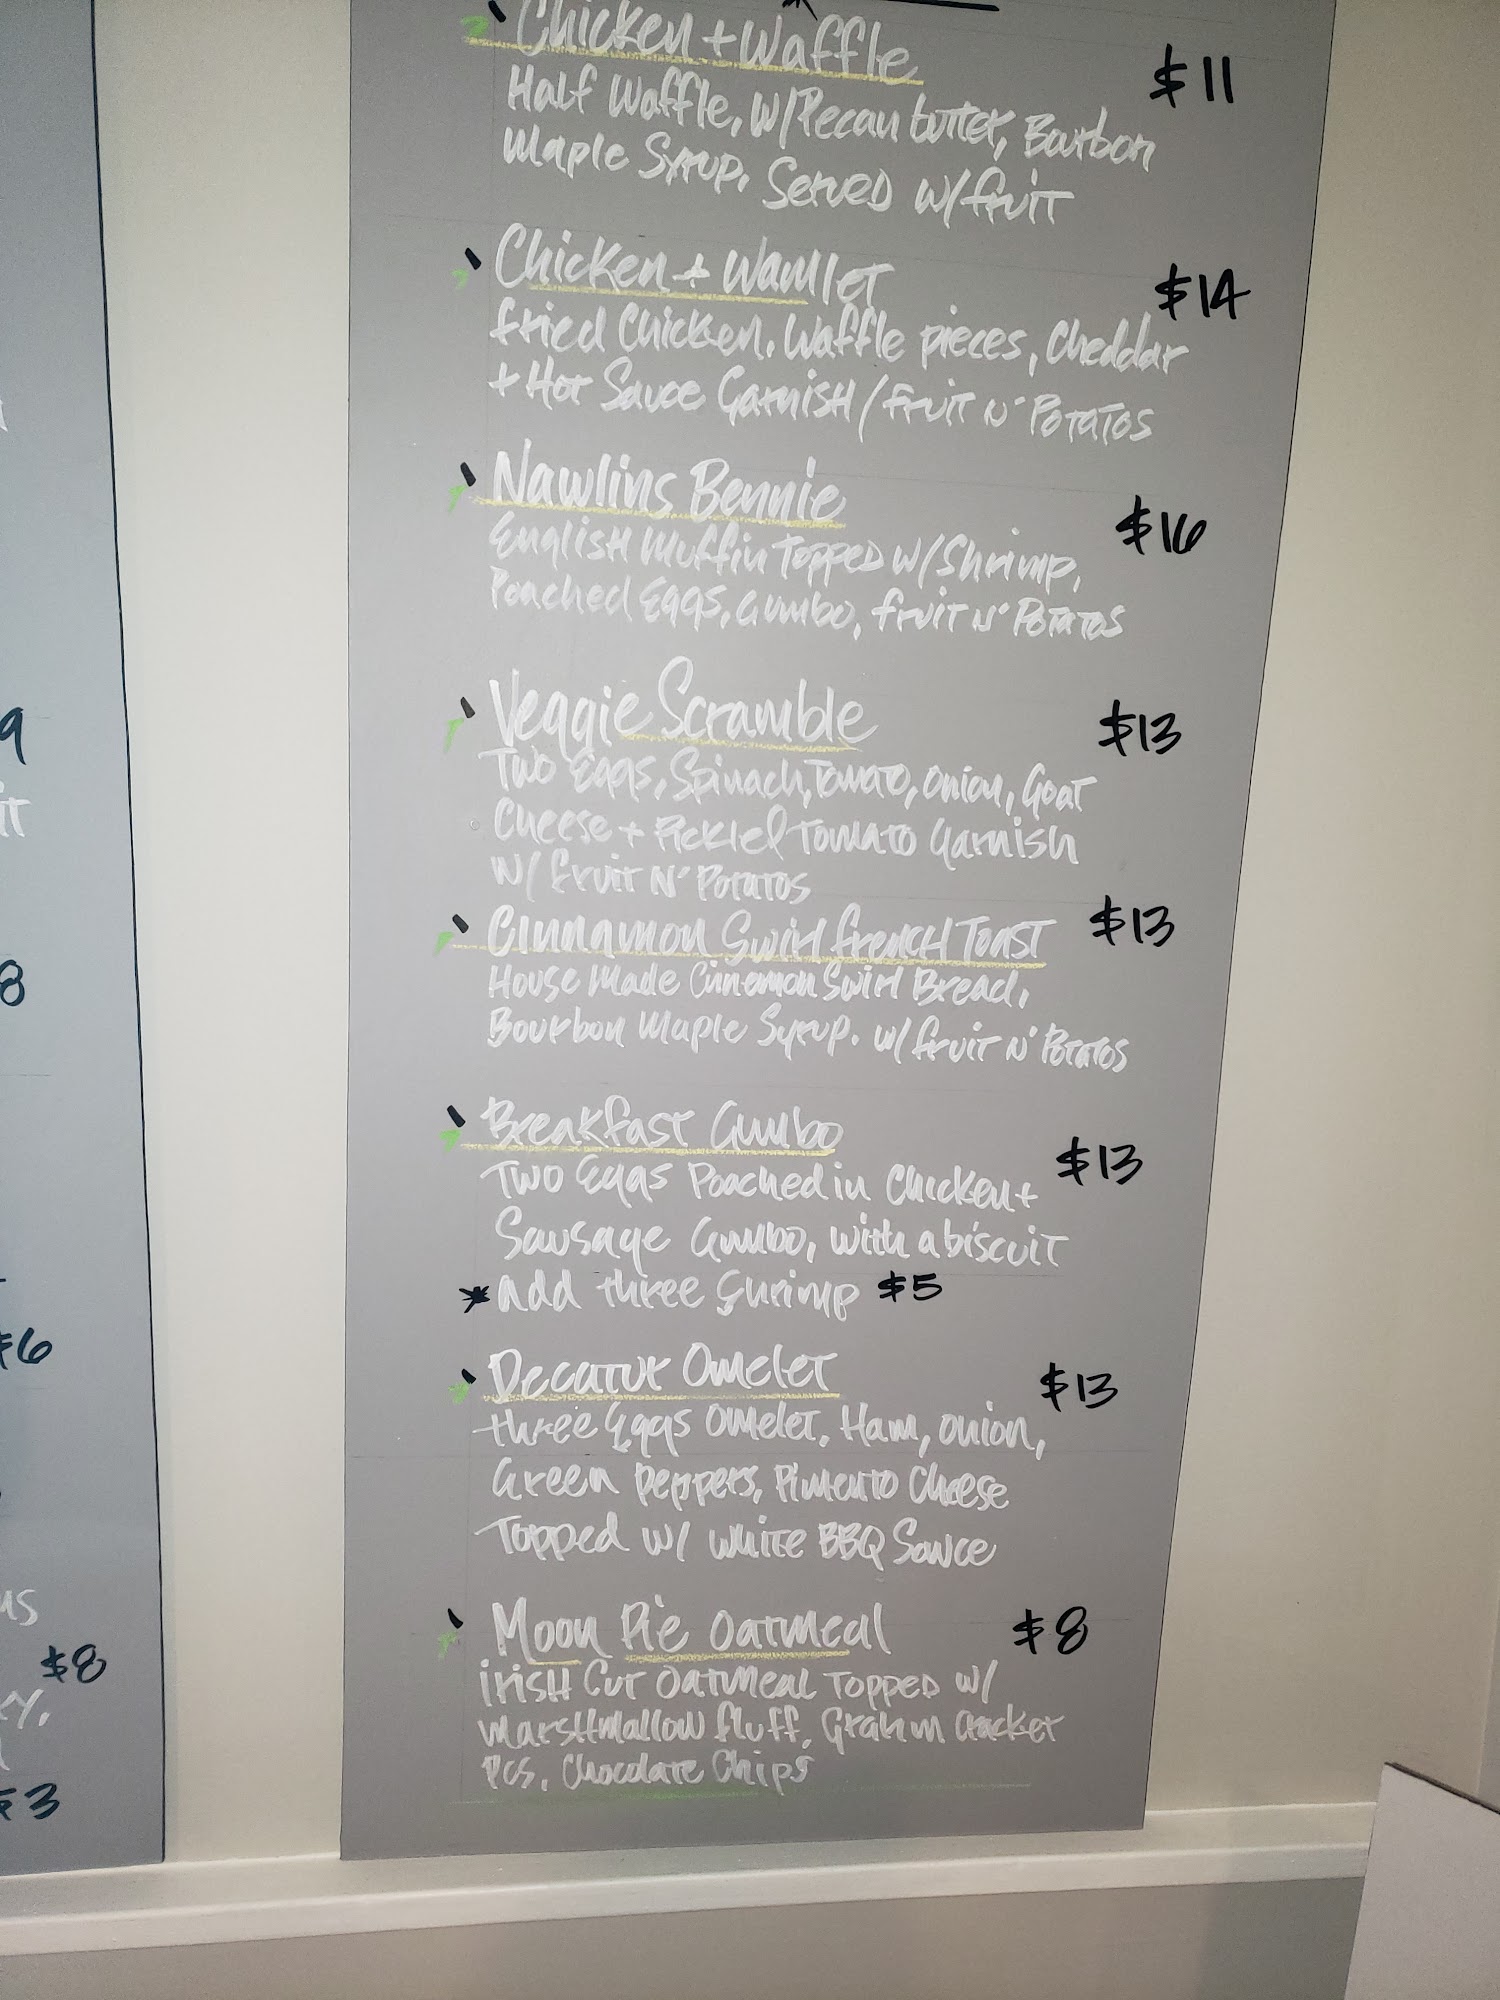 Chicken + Waffle $11
Half Waffle, W/Pecan butter, Bourbon
Maple Syrup. Served w/fruit
Chicken + Wamlet $14
fried Chicken, Waffle pieces, Cheddar
+ Hot Sauce Garnish/fruit n' Potatos
Nawlins Bennie $16
English Muffin Topped w/Shrimp,
Poached Eggs, Gumbo, fruit n' Potatos
Veggie Scramble $13
Two Eggs, Spinach, Tomato, onion, Goat
Cheese + Pickled Tomato Garnish
w/ fruit N' Potatos
Cinnamon Swirl french Toast $13
House Made Cinnemon Swirl Bread,
Bourbon Maple Syrup. w/ fruit n' Potatos
Breakfast Gumbo $13
Two Eggs Poached in Chicken +
Sausage Gumbo, with a biscuit
* add three Shrimp $5
Decatur Omelet $13
three Eggs Omelet. Ham, onion,
Green peppers, Pimento Cheese
Topped w/ White BBQ Sauce
Moon Pie Oatmeal $8
irish Cut Oatmeal Topped w/
marshmallow fluff, Graham Cracker
Pcs, Chocolate Chips
9
it
8
$6
us
$8
y,
$3